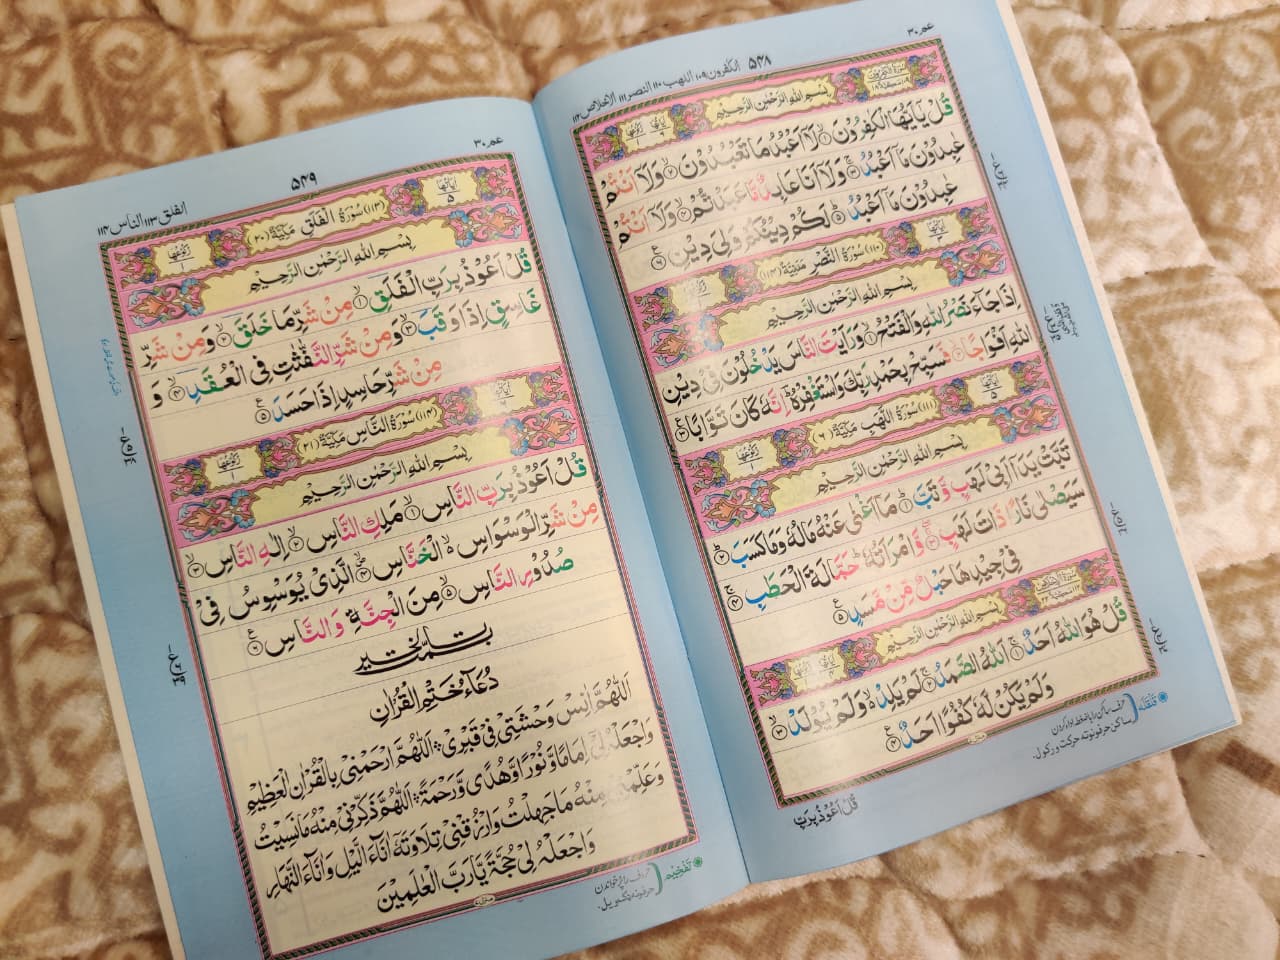 عم ٣٠
٥٤٨
الكفرون ١٠٩ اللهب ١١٠ النصر ١١١ الاخلاص ١١٢
بِسْمِ اللهِ الرَّحْمٰنِ الرَّحِيْمِ
قُلْ يٰٓاَيُّهَا الْكٰفِرُوْنَ ۙ﴿١﴾ لَاۤ اَعْبُدُ مَا تَعْبُدُوْنَ ۙ﴿٢﴾ وَلَاۤ اَنْتُمْ
عٰبِدُوْنَ مَاۤ اَعْبُدُ ۚ﴿٣﴾ وَلَاۤ اَنَا عَابِدٌ مَّا عَبَدْتُّمْ ۙ﴿٤﴾ وَلَاۤ اَنْتُمْ
عٰبِدُوْنَ مَاۤ اَعْبُدُ ؕ﴿٥﴾ لَكُمْ دِيْنُكُمْ وَلِيَ دِيْنِ ﴿٦﴾
اٰيَاتُهَا ٣ (١١٠) سُوْرَةُ النَّصْرِ مَدَنِيَّةٌ (١١٤) رُكُوْعُهَا ١
بِسْمِ اللهِ الرَّحْمٰنِ الرَّحِيْمِ
اِذَا جَآءَ نَصْرُ اللهِ وَالْفَتْحُ ۙ﴿١﴾ وَرَاَيْتَ النَّاسَ يَدْخُلُوْنَ فِيْ دِيْنِ
اللهِ اَفْوَاجًا ۙ﴿٢﴾ فَسَبِّحْ بِحَمْدِ رَبِّكَ وَاسْتَغْفِرْهُ ؕ اِنَّهٗ كَانَ تَوَّابًا ﴿٣﴾
اٰيَاتُهَا ٥ (١١١) سُوْرَةُ اللَّهَبِ مَكِّيَّةٌ (٦) رُكُوْعُهَا ١
بِسْمِ اللهِ الرَّحْمٰنِ الرَّحِيْمِ
تَبَّتْ يَدَاۤ اَبِيْ لَهَبٍ وَّتَبَّ ؕ﴿١﴾ مَاۤ اَغْنٰى عَنْهُ مَالُهٗ وَمَا كَسَبَ ؕ﴿٢﴾
سَيَصْلٰى نَارًا ذَاتَ لَهَبٍ ۚۖ﴿٣﴾ وَّامْرَاَتُهٗ ؕ حَمَّالَةَ الْحَطَبِ ۚ﴿٤﴾
فِيْ جِيْدِهَا حَبْلٌ مِّنْ مَّسَدٍ ﴿٥﴾
بِسْمِ اللهِ الرَّحْمٰنِ الرَّحِيْمِ
قُلْ هُوَ اللهُ اَحَدٌ ۚ﴿١﴾ اَللهُ الصَّمَدُ ۚ﴿٢﴾ لَمْ يَلِدْ ۙ۬ وَلَمْ يُوْلَدْ ۙ﴿٣﴾
وَلَمْ يَكُنْ لَّهٗ كُفُوًا اَحَدٌ ﴿٤﴾
قُلْ اَعُوْذُ بِرَبِّ
قلقله
عم ٣٠
٥٤٩
الفلق ١١٣ الناس ١١٤
اٰيَاتُهَا ٥ (١١٣) سُوْرَةُ الْفَلَقِ مَكِّيَّةٌ (٢٠) رُكُوْعُهَا ١
بِسْمِ اللهِ الرَّحْمٰنِ الرَّحِيْمِ
قُلْ اَعُوْذُ بِرَبِّ الْفَلَقِ ۙ﴿١﴾ مِنْ شَرِّ مَا خَلَقَ ۙ﴿٢﴾ وَمِنْ شَرِّ
غَاسِقٍ اِذَا وَقَبَ ۙ﴿٣﴾ وَمِنْ شَرِّ النَّفّٰثٰتِ فِي الْعُقَدِ ۙ﴿٤﴾ وَ
مِنْ شَرِّ حَاسِدٍ اِذَا حَسَدَ ﴿٥﴾
(١١٤) سُوْرَةُ النَّاسِ مَكِّيَّةٌ (٢١) رُكُوْعُهَا ١
بِسْمِ اللهِ الرَّحْمٰنِ الرَّحِيْمِ
قُلْ اَعُوْذُ بِرَبِّ النَّاسِ ۙ﴿١﴾ مَلِكِ النَّاسِ ۙ﴿٢﴾ اِلٰهِ النَّاسِ ۙ﴿٣﴾
مِنْ شَرِّ الْوَسْوَاسِ ۙ الْخَنَّاسِ ۪ۙ﴿٤﴾ الَّذِيْ يُوَسْوِسُ فِيْ
صُدُوْرِ النَّاسِ ۙ﴿٥﴾ مِنَ الْجِنَّةِ وَالنَّاسِ ﴿٦﴾
دُعَآءُ خَتْمِ الْقُرْاٰنِ
اَللّٰهُمَّ اٰنِسْ وَحْشَتِيْ فِيْ قَبْرِيْ اَللّٰهُمَّ ارْحَمْنِيْ بِالْقُرْاٰنِ الْعَظِيْمِ
وَاجْعَلْهُ لِيْ اِمَامًا وَّنُوْرًا وَّهُدًى وَّرَحْمَةً اَللّٰهُمَّ ذَكِّرْنِيْ مِنْهُ مَا نَسِيْتُ
وَعَلِّمْنِيْ مِنْهُ مَا جَهِلْتُ وَارْزُقْنِيْ تِلَاوَتَهٗ اٰنَآءَ الَّيْلِ وَاٰنَآءَ النَّهَارِ
وَاجْعَلْهُ لِيْ حُجَّةً يَّارَبَّ الْعٰلَمِيْنَ
تفخيم